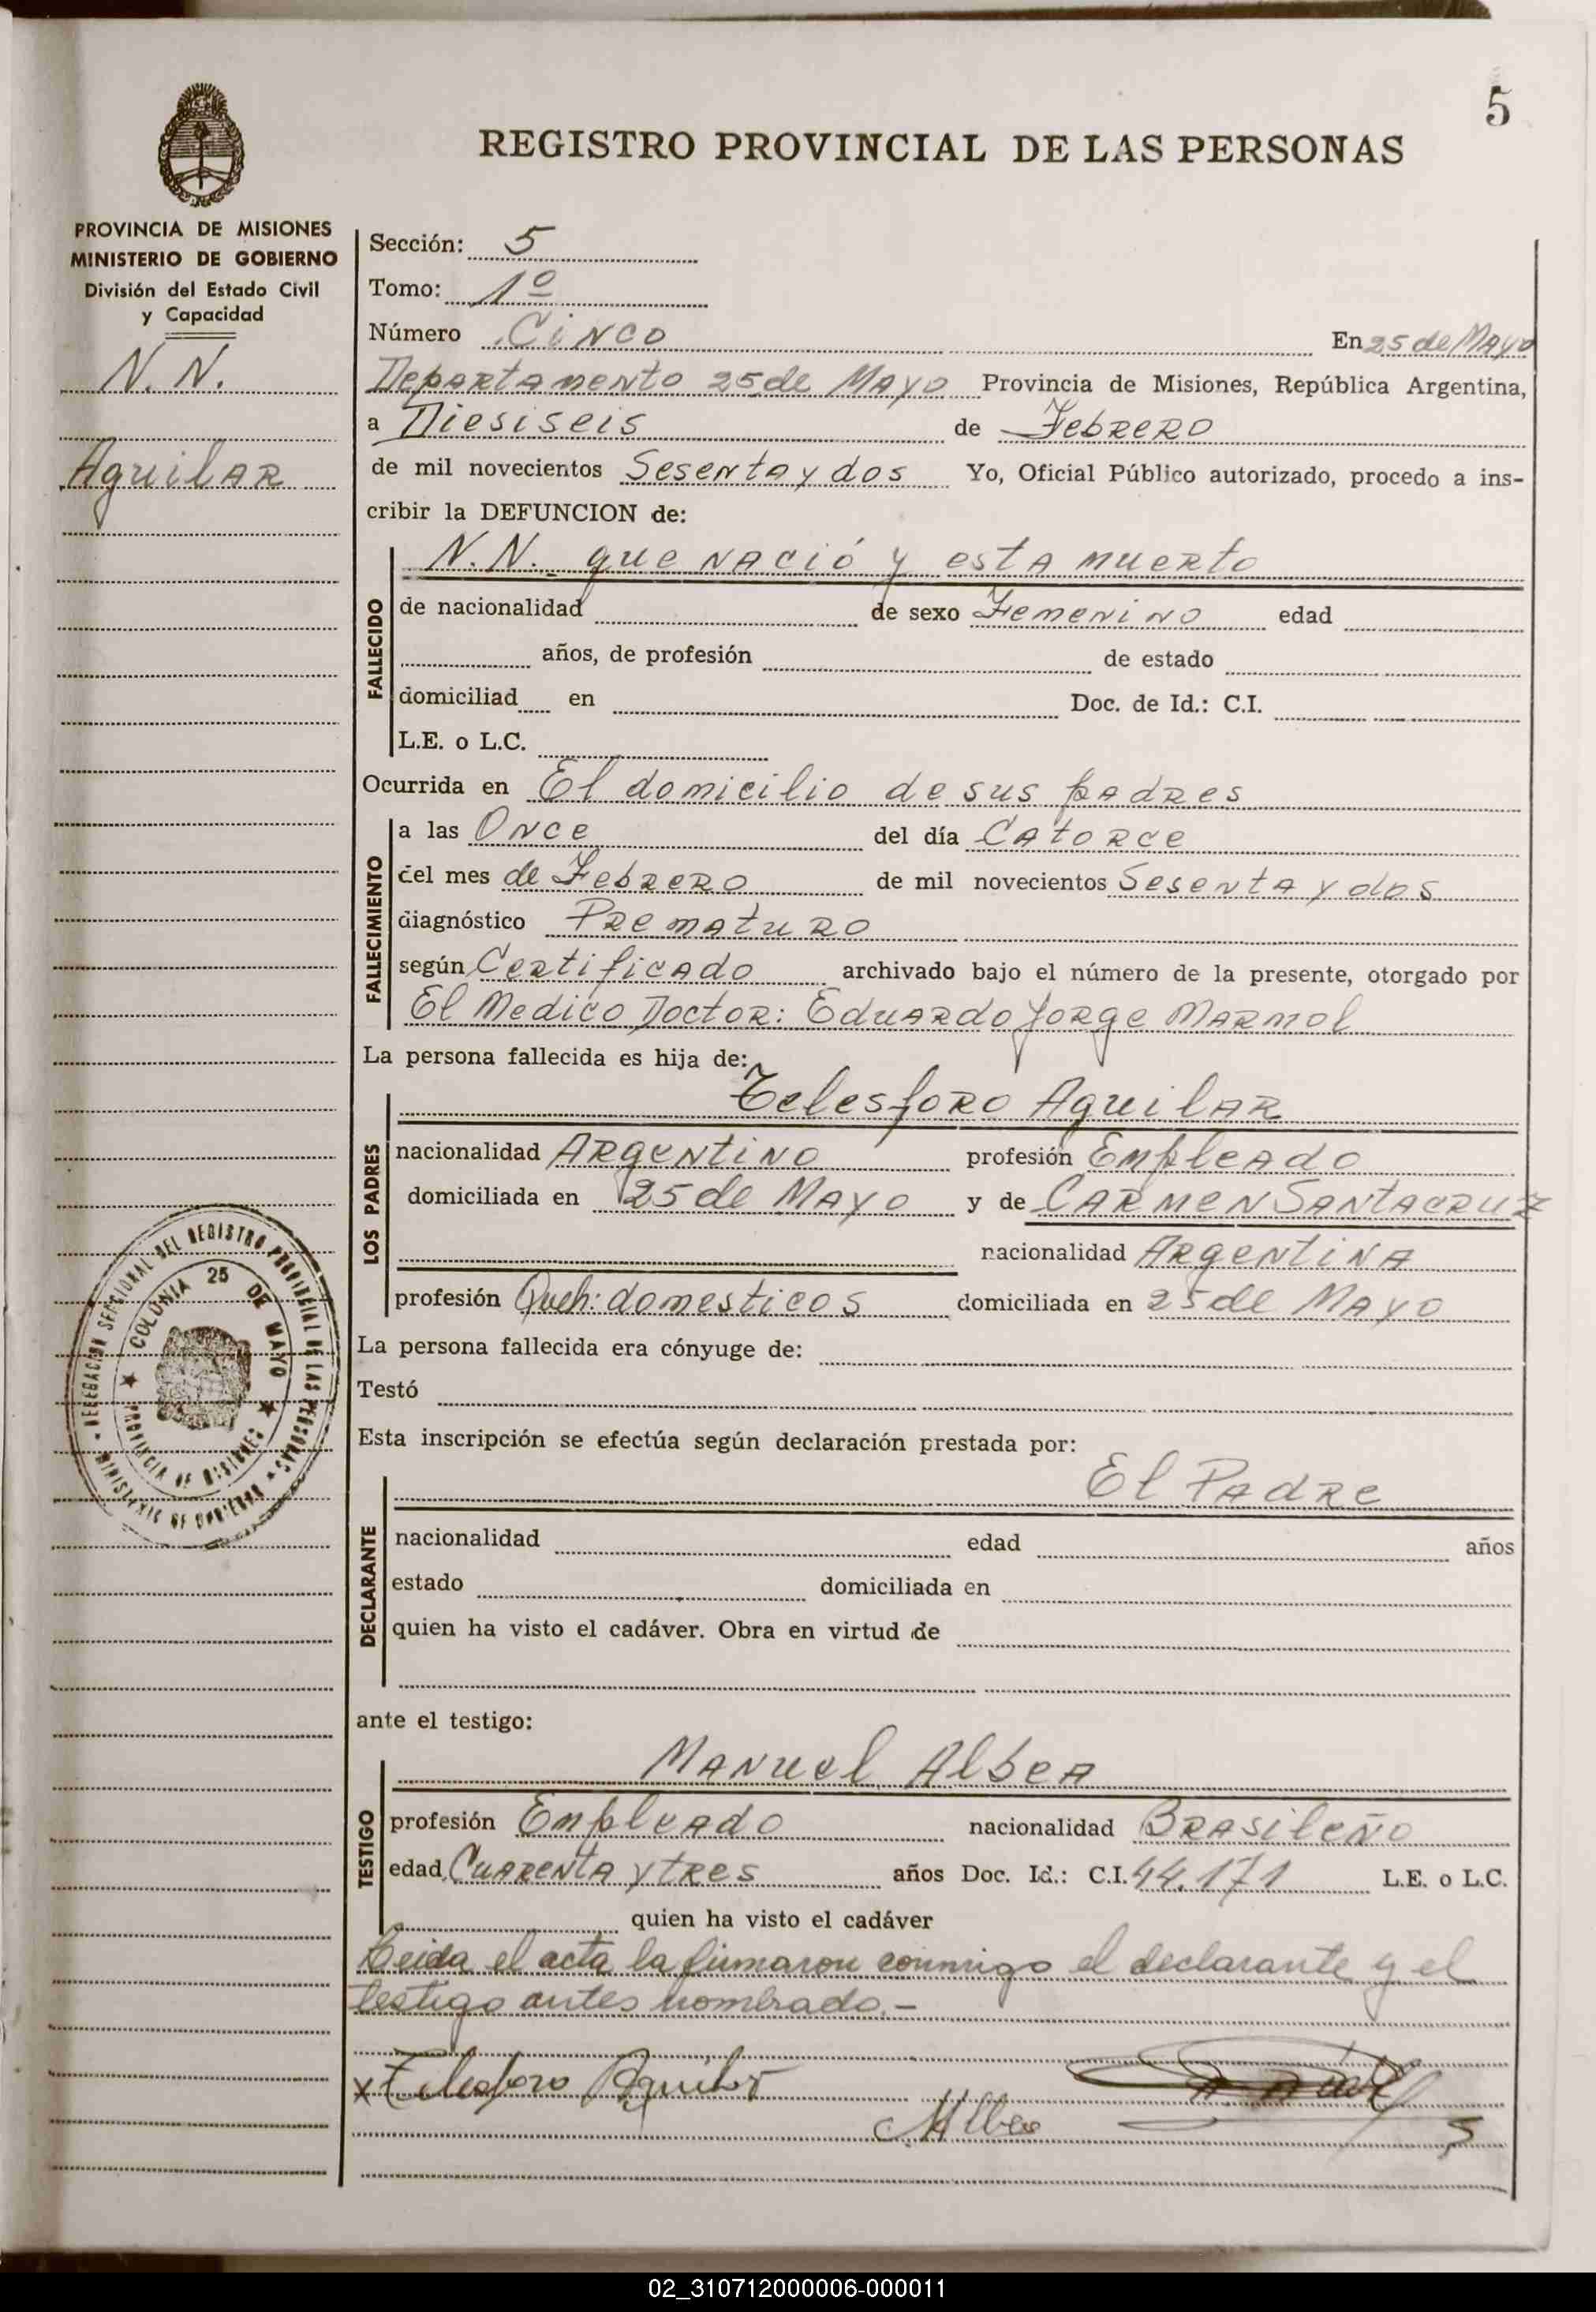 5
REGISTRO PROVINCIAL DE LAS PERSONAS
PROVINCIA DE MISIONES
MINISTERIO DE GOBIERNO
División del Estado Civil
y Capacidad
N. N.
Aguilar
Sección: 5
Tomo: 1º
Número Cinco En 25 de Mayo
Departamento 25 de Mayo Provincia de Misiones, República Argentina,
a Diesiseis de Febrero
de mil novecientos Sesenta y dos Yo, Oficial Público autorizado, procedo a ins-
cribir la DEFUNCION de:
N.N. que nació y esta muerto
FALLECIDO
de nacionalidad de sexo Femenino edad
años, de profesión de estado
domiciliad en Doc. de Id.: C.I.
L.E. o L.C.
Ocurrida en El domicilio de sus padres
FALLECIMIENTO
a las Once del día Catorce
del mes de Febrero de mil novecientos Sesenta y dos
diagnóstico Prematuro
según Certificado archivado bajo el número de la presente, otorgado por
El Medico Doctor: Eduardo Jorge Marmol
La persona fallecida es hija de:
Telesforo Aguilar
LOS PADRES
nacionalidad Argentino profesión Empleado
domiciliada en 25 de Mayo y de Carmen Santacruz
nacionalidad Argentina
profesión Queh: domesticos domiciliada en 25 de Mayo
DELEGACION SECCIONAL DEL REGISTRO PROVINCIAL DE LAS PERSONAS
COLONIA 25 DE MAYO
PROVINCIA DE MISIONES
MINISTERIO DE GOBIERNO
La persona fallecida era cónyuge de:
Testó
Esta inscripción se efectúa según declaración prestada por:
El Padre
DECLARANTE
nacionalidad edad años
estado domiciliada en
quien ha visto el cadáver. Obra en virtud de
ante el testigo:
Manuel Albea
TESTIGO
profesión Empleado nacionalidad Brasileño
edad Cuarenta y tres años Doc. Id.: C.I. 44.171 L.E. o L.C.
quien ha visto el cadáver
Leida el acta la firmaron conmigo el declarante y el
testigo antes nombrado.-
x Telesforo Aguilar
MAlbea
02_310712000006-000011